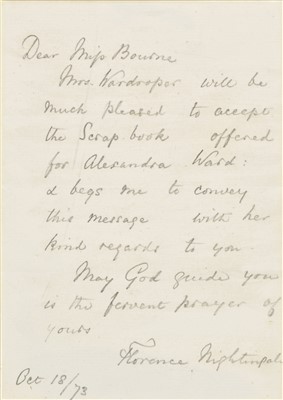 Dear Miss Bourne
Mrs. Wardroper will be
much pleased to accept
the Scrap-book offered
for Alexandra Ward:
& begs me to convey
this message with her
kind regards to you.
May God guide you
is the fervent prayer of
yours
Florence Nightingale
Oct 18/73